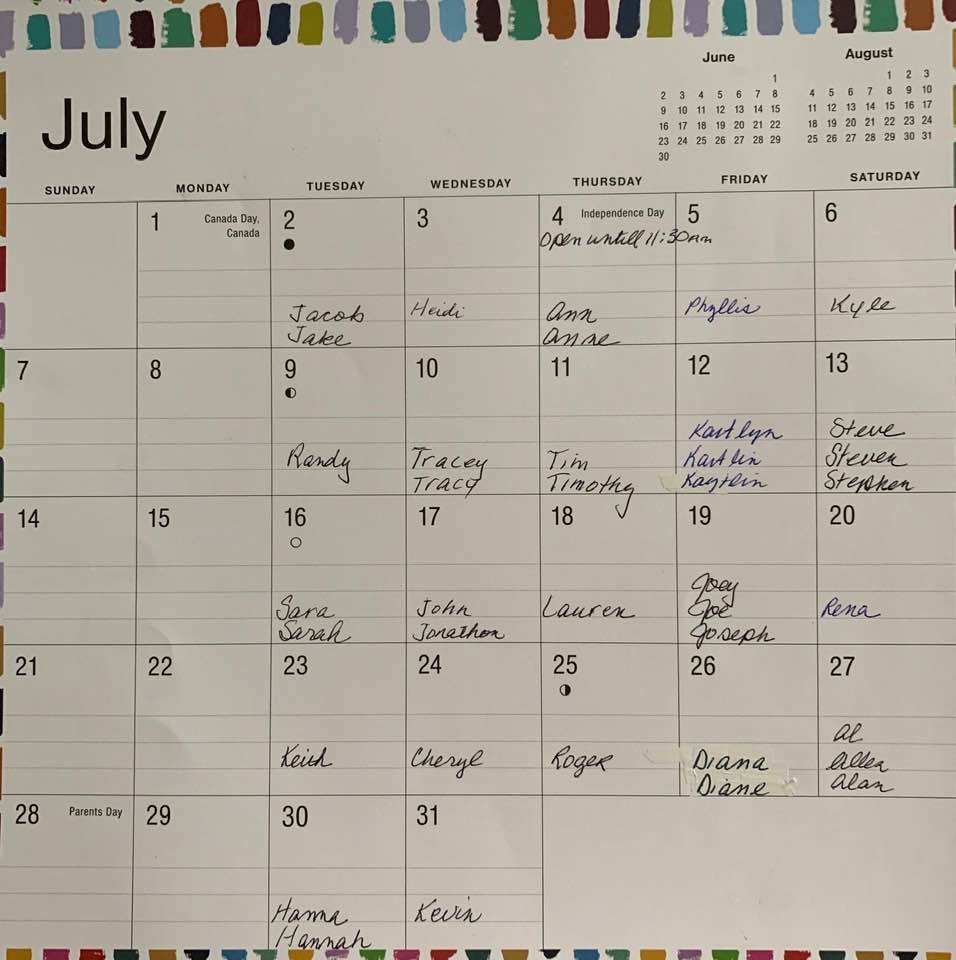 July
June
1
2 3 4 5 6 7 8
9 10 11 12 13 14 15
16 17 18 19 20 21 22
23 24 25 26 27 28 29
30
August
1 2 3
4 5 6 7 8 9 10
11 12 13 14 15 16 17
18 19 20 21 22 23 24
25 26 27 28 29 30 31
SUNDAY MONDAY TUESDAY WEDNESDAY THURSDAY FRIDAY SATURDAY
1 Canada Day,
Canada
2
Jacob
Jake
3
Heidi
4 Independence Day
Open untill 11:30am
Ann
Anne
5
Phyllis
6
Kyle
7
8
9
Randy
10
Tracey
Tracy
11
Tim
Timothy
12
Kaitlyn
Kaitlin
Kaytlin
13
Steve
Steven
Stephen
14
15
16
Sara
Sarah
17
John
Jonathon
18
Lauren
19
Joey
Joe
Joseph
20
Rena
21
22
23
Keith
24
Cheryl
25
Roger
26
Diana
Diane
27
Al
Allen
Alan
28 Parents Day
29
30
Hanna
Hannah
31
Kevin